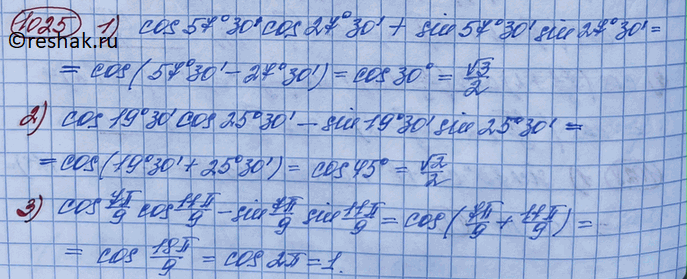 1025 1) cos57°30' cos27°30' + sin57°30' sin27°30' =
©reshak.ru
= cos(57°30' - 27°30') = cos30° = √3/2
2) cos19°30' cos25°30' - sin19°30' sin25°30' =
= cos(19°30' + 25°30') = cos45° = √2/2
3) cos 7π/9 cos 11π/9 - sin 7π/9 sin 11π/9 = cos(7π/9 + 11π/9) =
= cos 18π/9 = cos2π = 1.